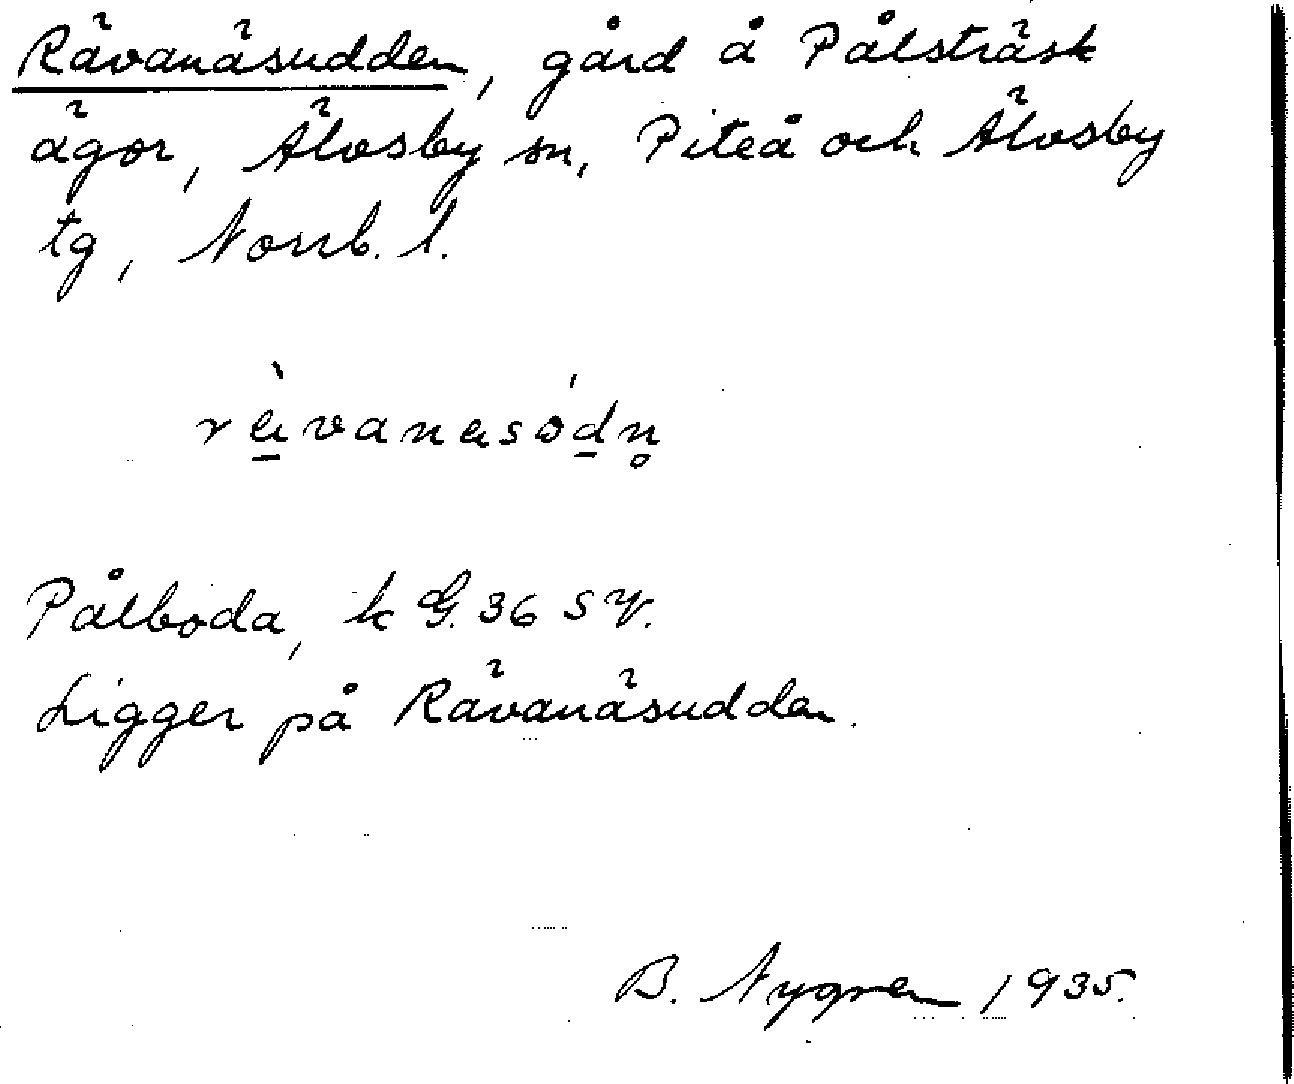 Rävanäsudden, gård å Pålsträsk
ägor, Älvsby sn, Piteå och Älvsby
tg, Norrb. l.
rävanäsódn̥
Pålboda, k G. 36 s v.
Ligger på Rävanäsudden.
B. Nygren 1935.